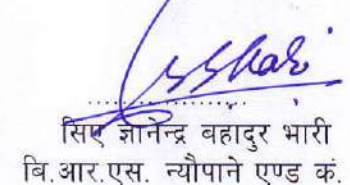 सिए ज्ञानेन्द्र बहादुर भारी
बि.आर.एस. न्यौपाने एण्ड कं.